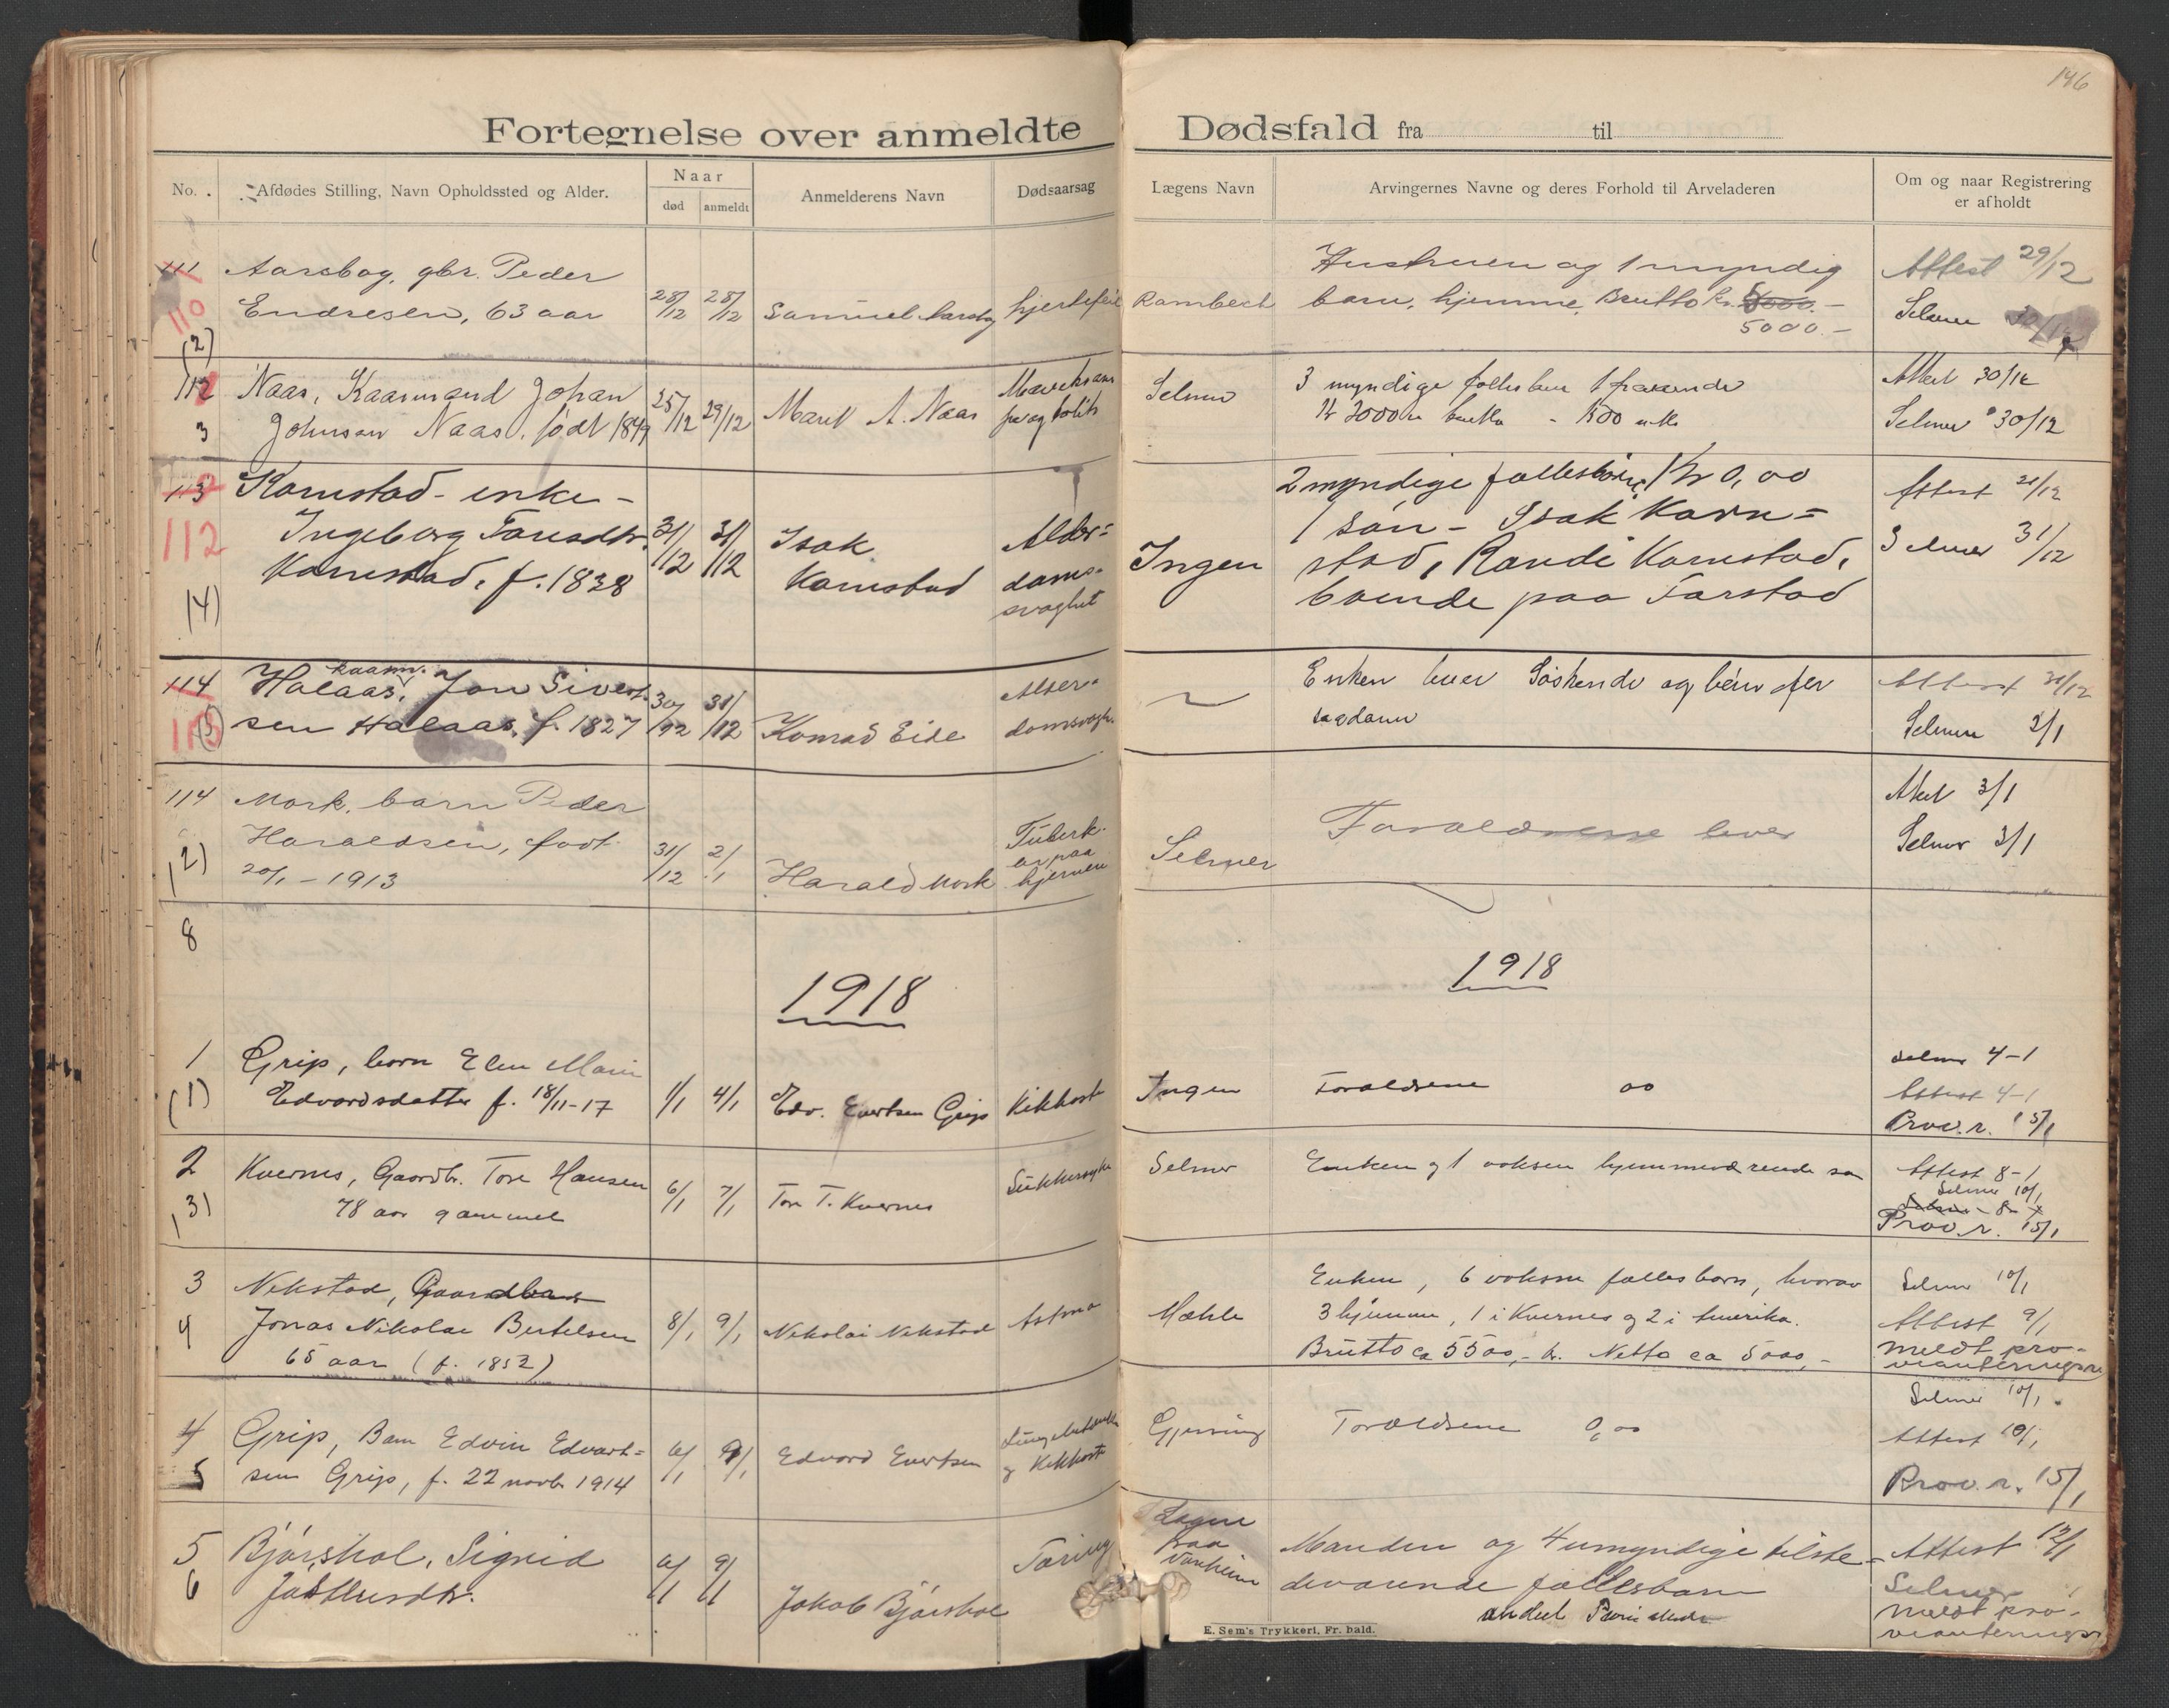 146
Fortegnelse over anmeldte Dødsfald fra til
No.
Afdødes Stilling, Navn Opholdssted og Alder.
Naar
død
anmeldt
Anmelderens Navn
Dødsaarsag
Lægens Navn
Arvingernes Navne og deres Forhold til Arveladeren
Om og naar Registrering
er afholdt
111
110
(2)
Aarsbog, gbr. Peder
Endresen, 63 aar
28/12
28/12
Samuel Aarsbog
hjertefeil
Rambech
Hustruen og 1 myndig
barn, hjemme, Brutto kr.
5000.-
Attest 29/12
Selmer
112
3
Naas, Kaarmand Johan
Johnsen Naas, født 1849
25/12
29/12
Marit A. Naas
Selmer
3 myndige felles
Attest 30/12
Selmer 30/12
113
112
(4)
Karnstad - enke -
Ingeborg
Karnstad, f. 1838
31/12
31/12
Isak
Karnstad
Alder-
doms-
svaghet
Ingen
2 myndige fællesbørn, Kr 0,00
1 søn - Isak Karn-
stad, Randi Karnstad,
boende paa Farstad
Attest 31/12
Selmer 31/12
114
113
(5)
kaarm.
Halaas, Jon Sivert-
sen Halaas, f. 1827
30/12
31/12
Konrad Eide
Alder-
domsvagh.
Enken lever Søskende og børn efter
saadanne
Attest 31/12
Selmer 2/1
114
(2)
Mork, barn Peder
Haraldsen, født
20/1 - 1913
31/12
2/1
Harald Mork
Tuberk-
ler paa
hjernen
Selmer
Forældrene lever
Attest 3/1
Selmer 3/1
8
1918
1918
1
(1)
Grip, barn Elen Marie
Edvardsdatter f. 18/11-17
1/1
4/1
Edv. Evertsen Grip
Kikhoste
Ingen
Forældrene 00
Selmer 4-1
Attest 4-1
Prov.r. 15/1
2
(3)
Kvernes, Gaardbr. Tore Hansen
78 aar gammel
6/1
7/1
Tore T. Kvernes
Sukkersyke
Selmer
Enken og 1 voksen hjemmeværende søn
Attest 8-1
Selmer 10/1
Selmer - 8-1
Prov.r. 15/1
3
4
Nekstad, Gaardbr
Jonas Nikolai Bertelsen
65 aar (f. 1852)
8/1
9/1
Nikolai Nekstad
Astma
Mæhle
Enken, 6 voksne fællesbarn, hvorav
3 hjemme, 1 i Kvernes og 2 i Amerika.
Brutto ca 5500,- kr. Netto ca 5000,-
Selmer 10/1
Attest 9/1
meldt pro-
vianteringsr
4
5
Grip, Barn Edvin Edvart-
sen Grip, f. 22 novbr 1914
6/1
9/1
Edvard Evertsen
Lungebetændelse
og Kikhoste
Gjersing
Forældrene 0,00
Selmer 10/1
Attest 10/1
Prov.r. 15/1
5
6
Bjørshol, Sigrid
6/1
9/1
Jakob Bjørshol
Tæring
Lægen
paa
Manden og 4 umyndige tilste-
deværende fællesbarn
Attest 12/1
Selmer
meldt pro-
vianteringsr
E. Sem's Trykkeri, Fr. hald.